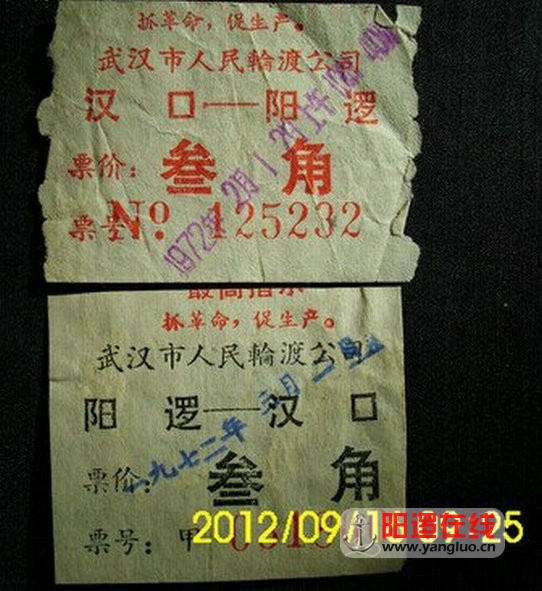 抓革命，促生产。
武汉市人民輪渡公司
汉口—阳逻
票价：叁角
票号 No. 125232
1972年2月1
最高指示
抓革命，促生产。
武汉市人民輪渡公司
阳逻—汉口
一九七二年 月一
票价：叁角
票号：甲
2012/09/1
25
阳逻在线
www.yangluo.cn